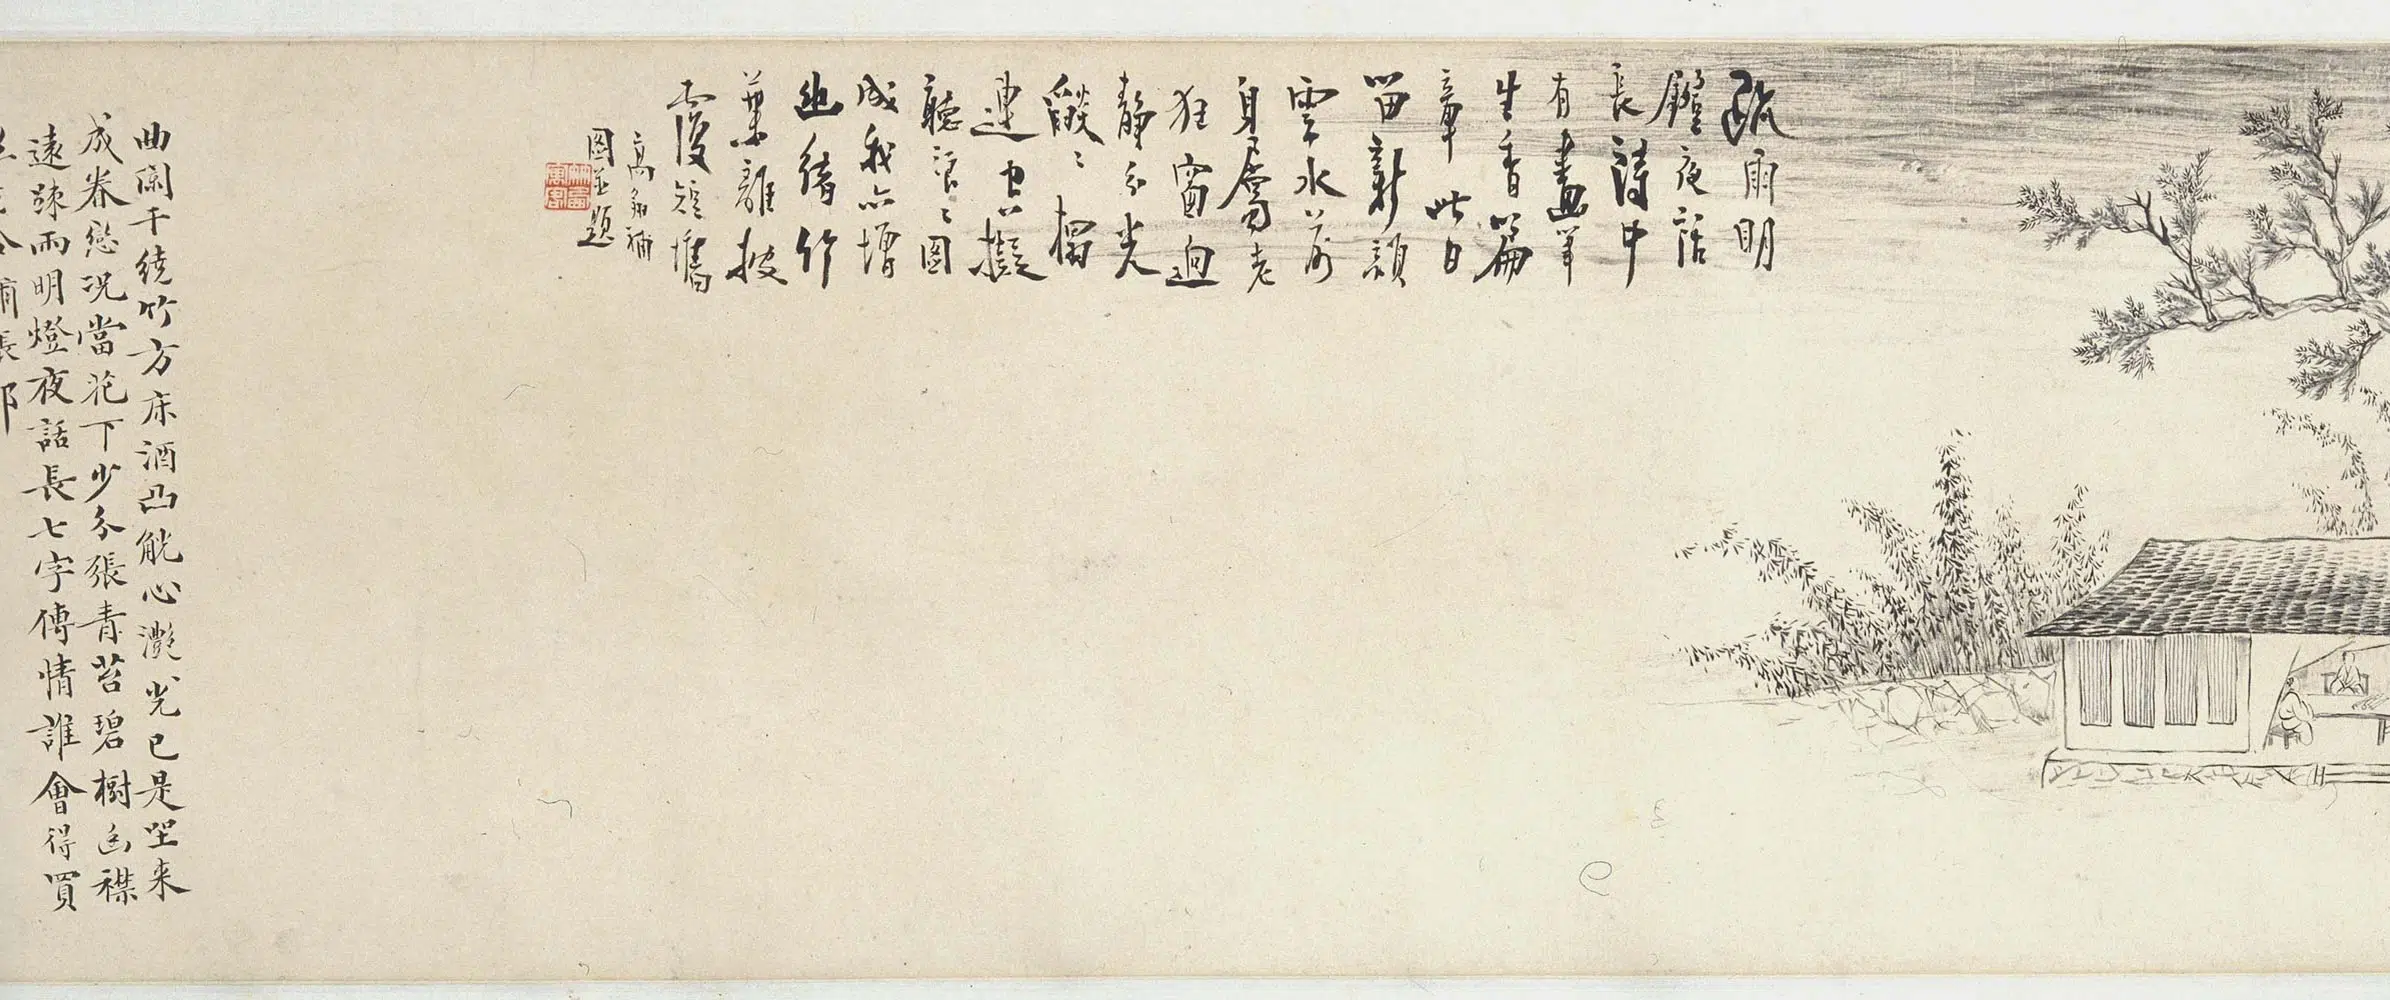 疏雨明
鐙夜話
長詩中
有畫筆
生香篇
章此日
留新韻
雲水前
身屬老
狂窗迥
靜分光
燄〻摺
連也擬
聽浪〻圖
成我亦增
幽緒竹
葉離披
覆短牆
高翁補
圖並題
曲闌干繞竹方床酒凸觥心灩灩光已是坐來
成眷戀況當花下少分張青苔碧樹幽襟
遠疎雨明燈夜話長七字傳情誰會得買